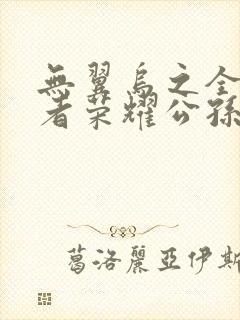 無翼烏之全
者荣耀公孫
葛洛麗亞伊斯